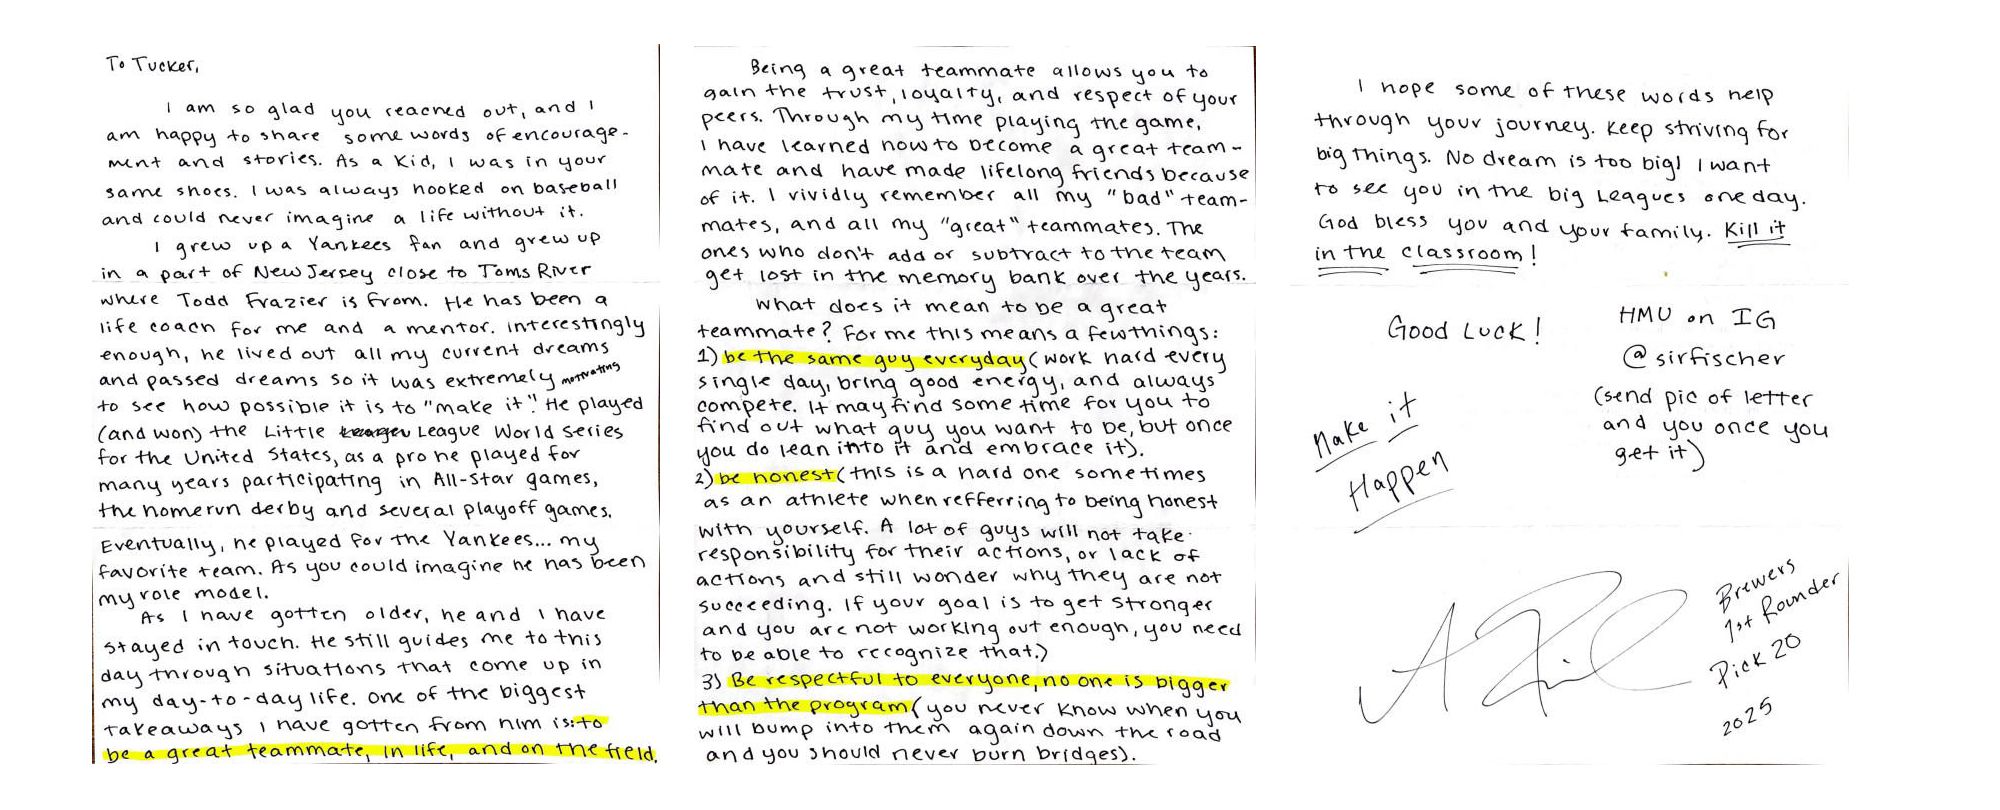 To Tucker,
I am so glad you reached out, and I
am happy to share some words of encourage-
ment and stories. As a kid, I was in your
same shoes. I was always hooked on baseball
and could never imagine a life without it.
I grew up a Yankees fan and grew up
in a part of New Jersey close to Toms River
where Todd Frazier is from. He has been a
life coach for me and a mentor. Interestingly
enough, he lived out all my current dreams
and passed dreams so it was extremely motivating
to see how possible it is to "make it". He played
(and won) the Little League World Series
for the United States, as a pro he played for
many years participating in All-Star games,
the homerun derby and several playoff games.
Eventually, he played for the Yankees... my
favorite team. As you could imagine he has been
my role model.
As I have gotten older, he and I have
stayed in touch. He still guides me to this
day through situations that come up in
my day-to-day life. One of the biggest
takeaways I have gotten from him is: to
be a great teammate, in life, and on the field.
Being a great teammate allows you to
gain the trust, loyalty, and respect of your
peers. Through my time playing the game,
I have learned how to become a great team-
mate and have made lifelong friends because
of it. I vividly remember all my "bad" team-
mates, and all my "great" teammates. The
ones who don't add or subtract to the team
get lost in the memory bank over the years.
What does it mean to be a great
teammate? For me this means a few things:
1) be the same guy everyday (work hard every
single day, bring good energy, and always
compete. It may find some time for you to
find out what guy you want to be, but once
you do lean into it and embrace it).
2) be honest (this is a hard one sometimes
as an athlete when refferring to being honest
with yourself. A lot of guys will not take
responsibility for their actions, or lack of
actions and still wonder why they are not
succeeding. If your goal is to get stronger
and you are not working out enough, you need
to be able to recognize that.)
3) Be respectful to everyone, no one is bigger
than the program (you never know when you
will bump into them again down the road
and you should never burn bridges).
I hope some of these words help
through your journey. Keep striving for
big things. No dream is too big! I want
to see you in the big Leagues one day.
God bless you and your family. Kill it
in the classroom!
Good Luck!
HMU on IG
@sirfischer
(send pic of letter
and you once you
get it)
Make it
Happen
Brewers
1st Rounder
Pick 20
2025